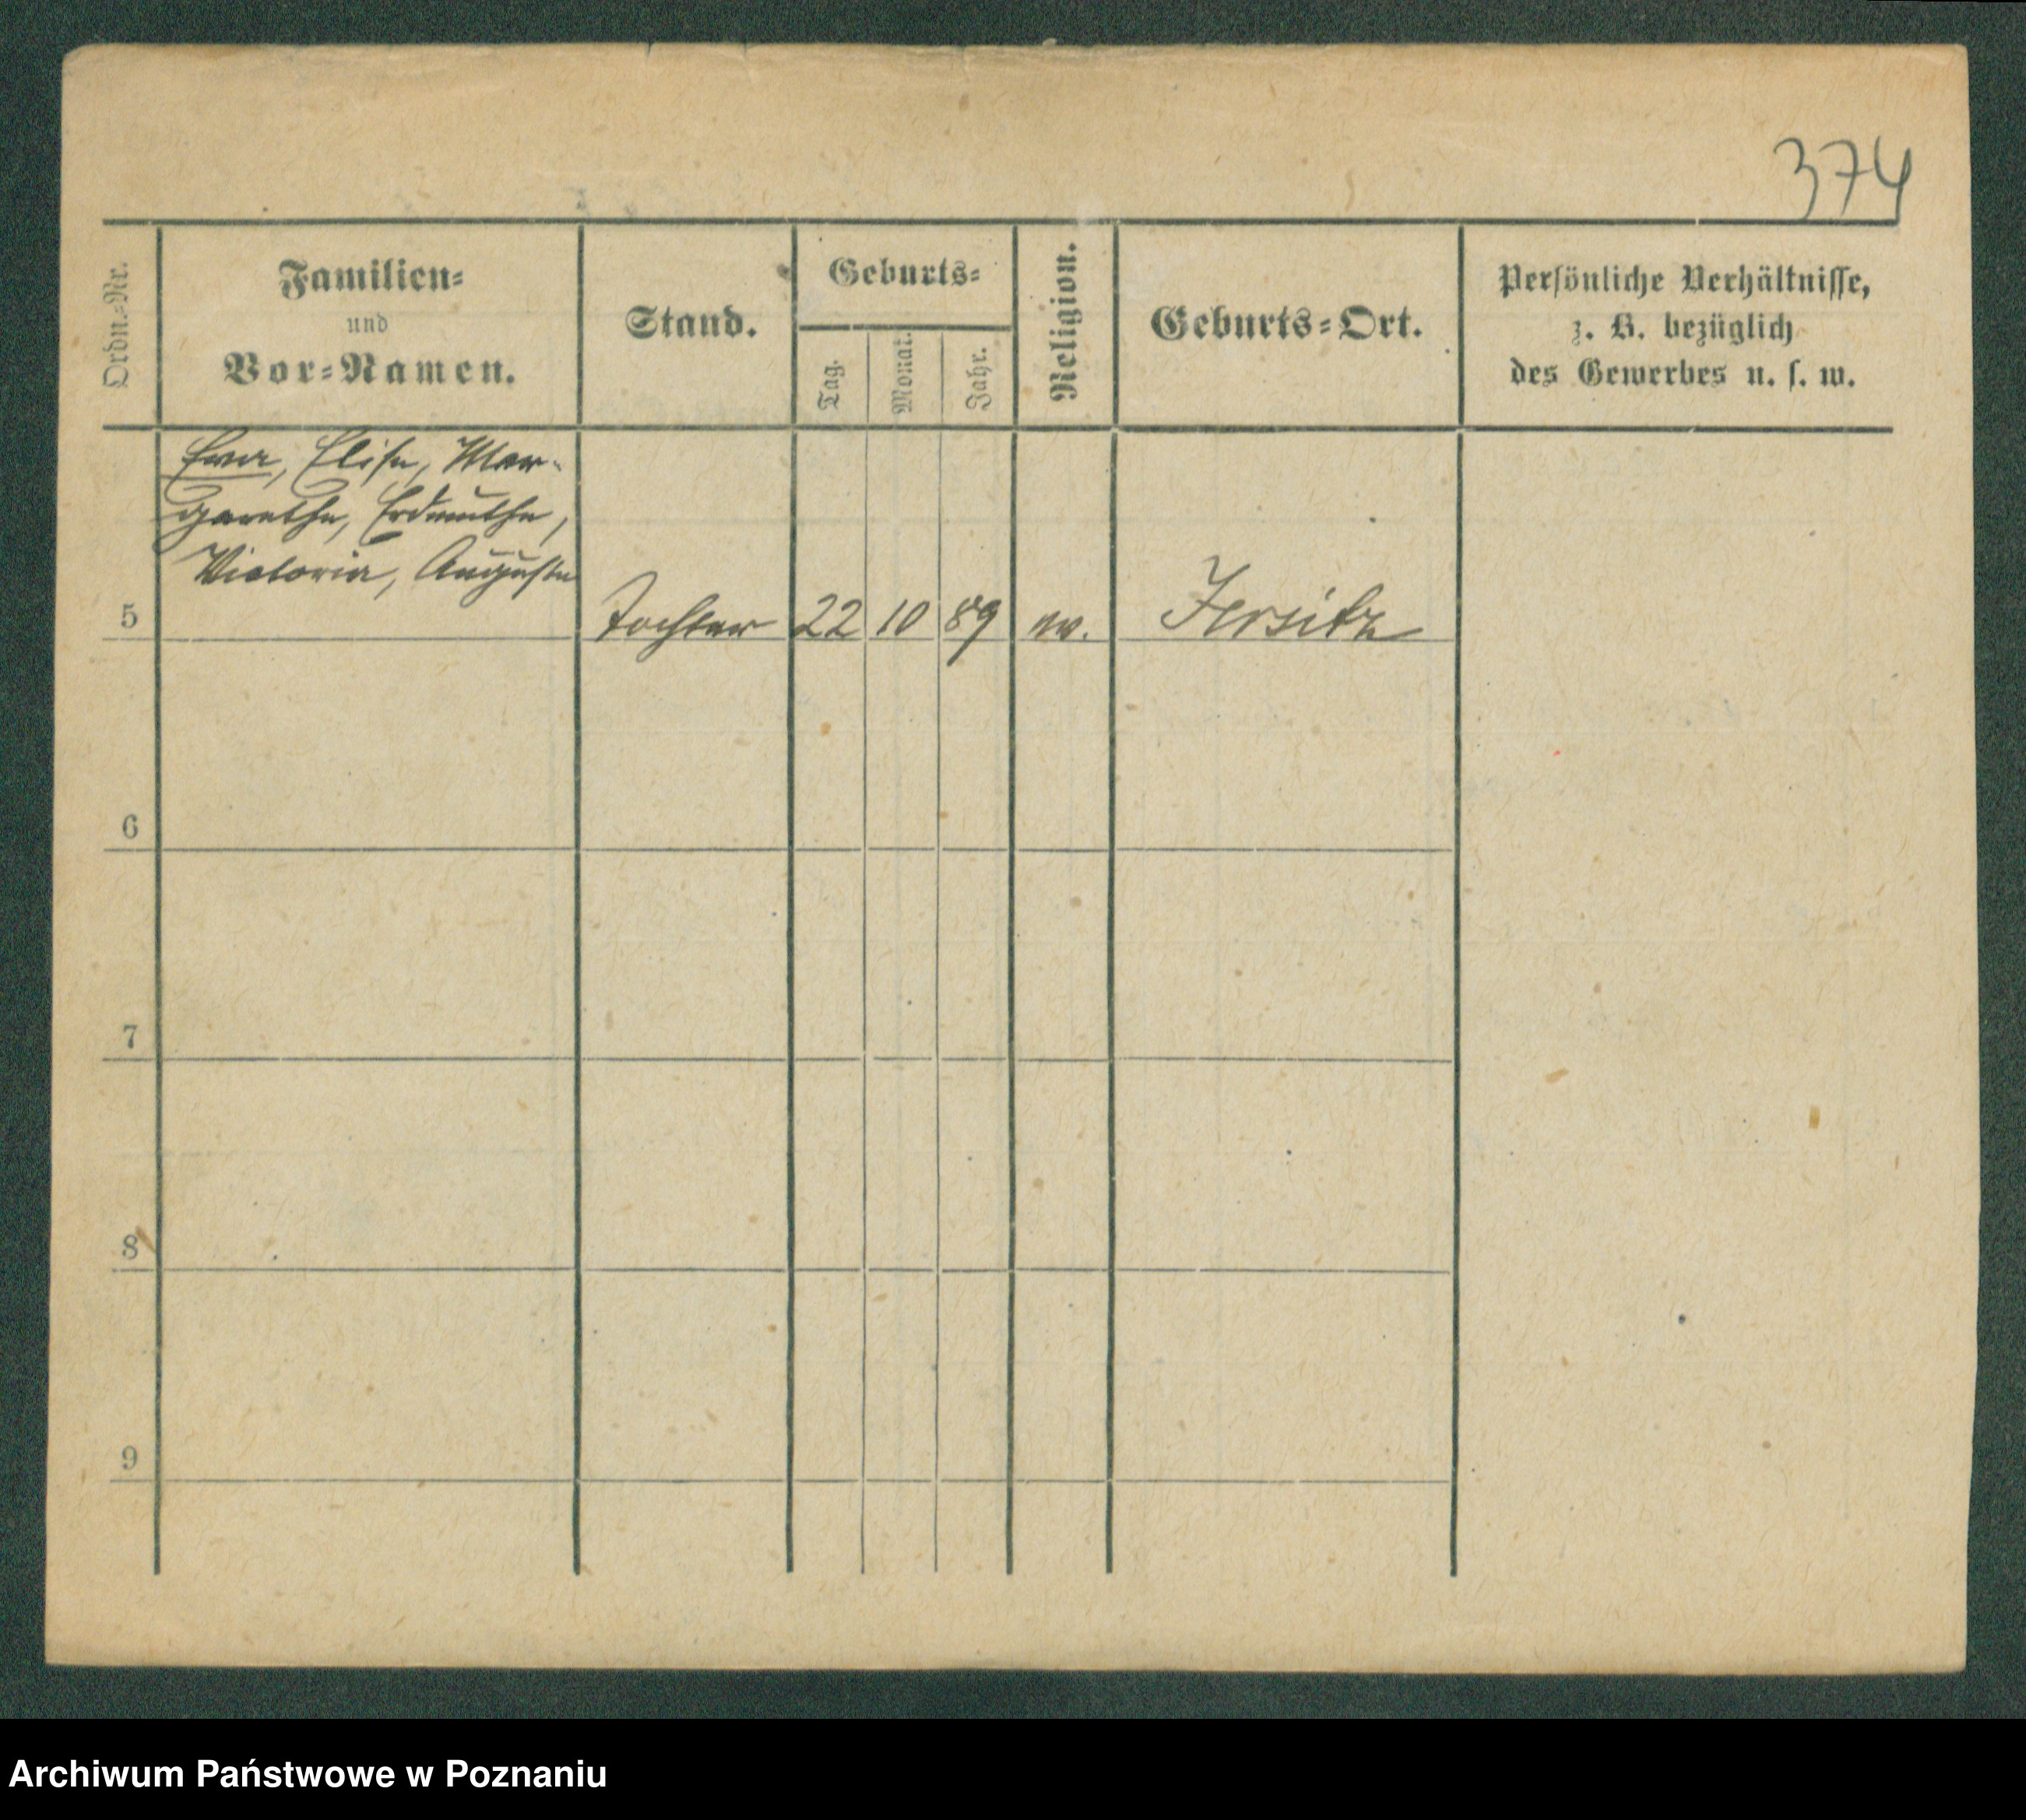 374
Ordn.-Nr.
Familien-
und
Vor-Namen.
Stand.
Geburts-
Tag.
Monat.
Jahr.
Religion.
Geburts-Ort.
Persönliche Verhältnisse,
z. B. bezüglich
des Gewerbes u. s. w.
Ewa, Elise, Mar-
garethe, Erdmuthe,
Victoria, Auguste
5 Tochter 22 10 89 ev. Jersitz
6
7
8
9
Archiwum Państwowe w Poznaniu